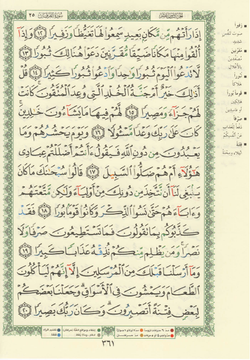 إِذَا رَأَتْهُم مِّن مَّكَانٍ بَعِيدٍ سَمِعُوا۟ لَهَا تَغَيُّظًا وَزَفِيرًا ١٢ وَإِذَآ
أُلْقُوا۟ مِنْهَا مَكَانًا ضَيِّقًا مُّقَرَّنِينَ دَعَوْا۟ هُنَالِكَ ثُبُورًا ١٣
لَّا تَدْعُوا۟ ٱلْيَوْمَ ثُبُورًا وَٰحِدًا وَٱدْعُوا۟ ثُبُورًا كَثِيرًا ١٤ قُلْ
أَذَٰلِكَ خَيْرٌ أَمْ جَنَّةُ ٱلْخُلْدِ ٱلَّتِى وُعِدَ ٱلْمُتَّقُونَ كَانَتْ
لَهُمْ جَزَآءً وَمَصِيرًا ١٥ لَّهُمْ فِيهَا مَا يَشَآءُونَ خَٰلِدِينَ
كَانَ عَلَىٰ رَبِّكَ وَعْدًا مَّسْـُٔولًا ١٦ وَيَوْمَ يَحْشُرُهُمْ وَمَا
يَعْبُدُونَ مِن دُونِ ٱللَّهِ فَيَقُولُ ءَأَنتُمْ أَضْلَلْتُمْ عِبَادِى
هَٰٓؤُلَآءِ أَمْ هُمْ ضَلُّوا۟ ٱلسَّبِيلَ ١٧ قَالُوا۟ سُبْحَٰنَكَ مَا كَانَ
يَنۢبَغِى لَنَآ أَن نَّتَّخِذَ مِن دُونِكَ مِنْ أَوْلِيَآءَ وَلَٰكِن مَّتَّعْتَهُمْ
وَءَابَآءَهُمْ حَتَّىٰ نَسُوا۟ ٱلذِّكْرَ وَكَانُوا۟ قَوْمًۢا بُورًا ١٨ فَقَدْ
كَذَّبُوكُم بِمَا تَقُولُونَ فَمَا تَسْتَطِيعُونَ صَرْفًا وَلَا
نَصْرًا وَمَن يَظْلِم مِّنكُمْ نُذِقْهُ عَذَابًا كَبِيرًا ١٩
وَمَآ أَرْسَلْنَا قَبْلَكَ مِنَ ٱلْمُرْسَلِينَ إِلَّآ إِنَّهُمْ لَيَأْكُلُونَ
ٱلطَّعَامَ وَيَمْشُونَ فِى ٱلْأَسْوَاقِ وَجَعَلْنَا بَعْضَكُمْ
لِبَعْضٍ فِتْنَةً أَتَصْبِرُونَ وَكَانَ رَبُّكَ بَصِيرًا ٢٠
٣٦١